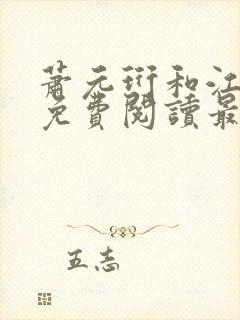 萧元珩和江
免费阅读最
五志